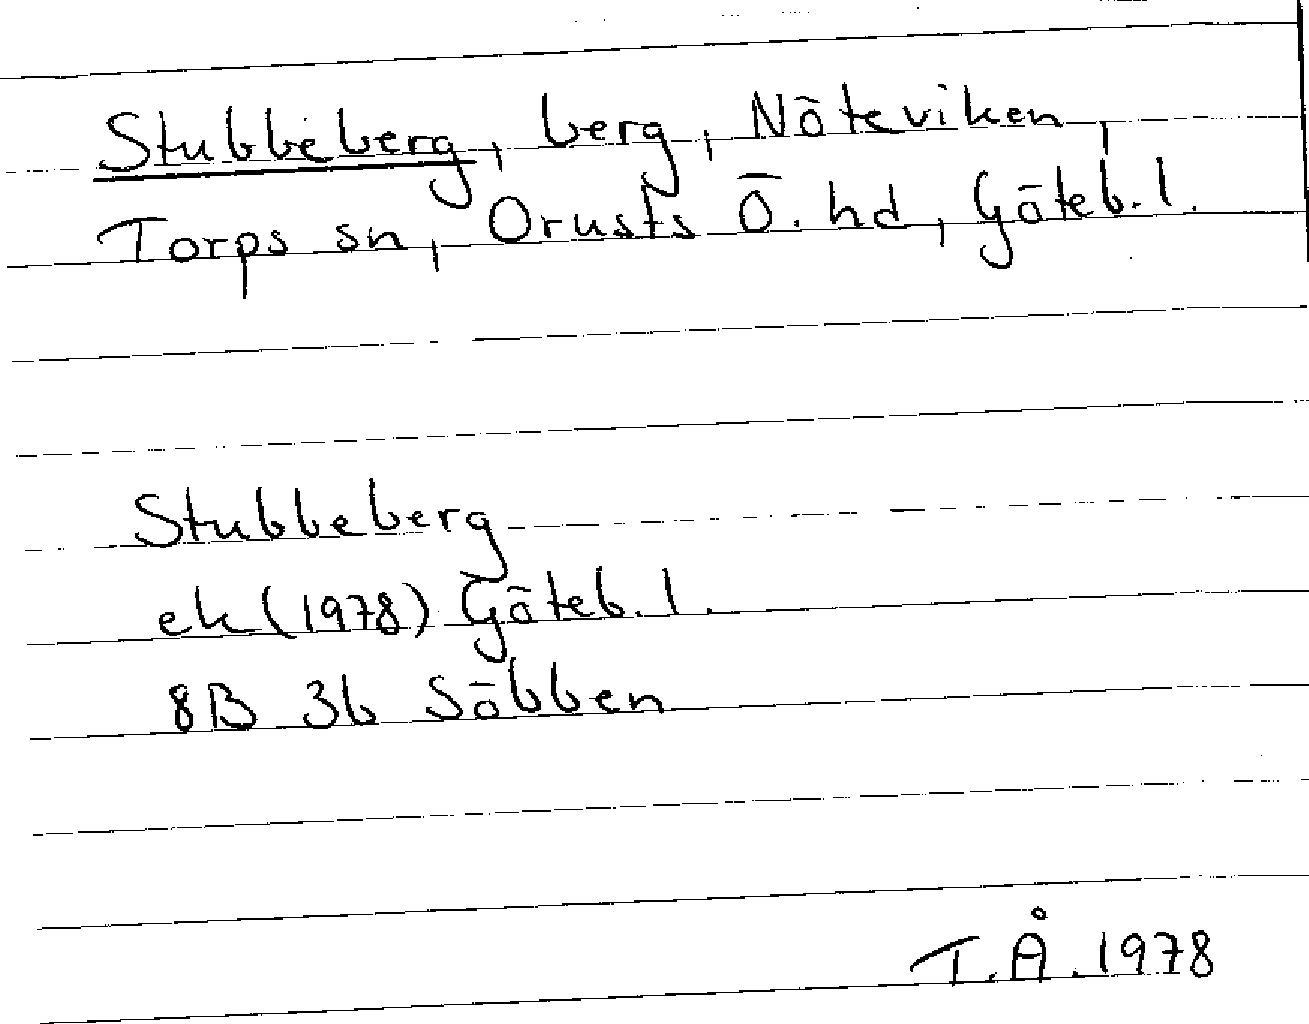 Stubbeberg, berg, Nöteviken,
Torps sn, Orusts Ö. hd, Göteb. l.
Stubbeberg
ek (1978) Göteb. l.
8B 3b Söbben
T.Å. 1978